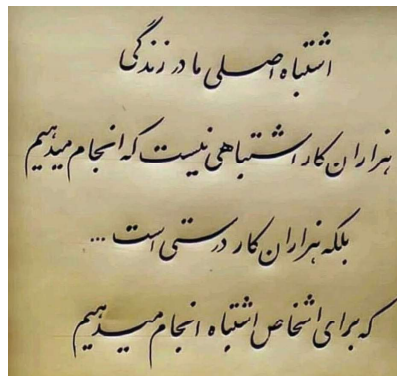 اشتباه اصلی ما در زندگی
هزاران کار اشتباهی نیست که انجام میدهیم
بلکه هزاران کار درستی است ...
که برای اشخاص اشتباه انجام میدهیم